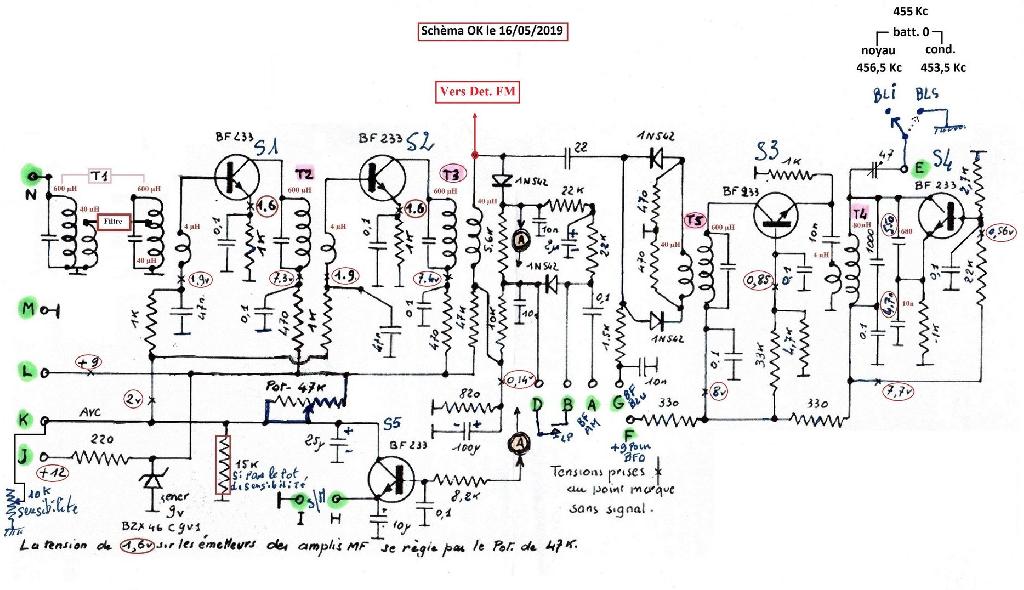 455 Kc
batt. 0
noyau cond.
456,5 Kc 453,5 Kc
Schèma OK le 16/05/2019
Vers Det. FM
BLI BLS
BF 233 S1
BF 233 S2
1N542
22
1N542
S3
1K
47
E
S4
N
T1
600 µH 600 µH
40 µH
Filtre
40 µH
4 µH
0,1
1K
1.6
T2
600 µH
4 µH
0,1
1K
1.6
T3
600 µH
40 µH
1N542
22K
5,6K
A
10n
22K
1N542
470
470
40 µH
T5
600 µH
BF 233
10n
4 µH
T4
80 µH
1000
550
680
BF 233
2,2K
0,56v
22K
1,9v
47n
7.3v
0,1
470
1K
1.9
47n
7.4v
0,1
470
47K
10K
10n
0,1
1,5K
1N542
10n
0,85
0,1
33K
4,7K
4,7v
10n
0,1
0,1
1K
M
1K
L
+9
2v
Pot. 47K
0,14v
D B A G
BF BLU
0,1
8v
7,7v
K
AVC
25µ
S5
820
100µ
LP
BF AM
F
+9 pour BFO
330
330
J
220
+12
10K
sensibilité
zener
9v
BZX 46 C 9V1
15K
si pas le pot
de sensibilité
BF 233
I S/M H
10µ
0,1
8,2K
A
Tensions prises
au point marque
sans signal.
La tension de 1,6v sur les émetteurs des amplis MF se règle par le Pot. de 47K.